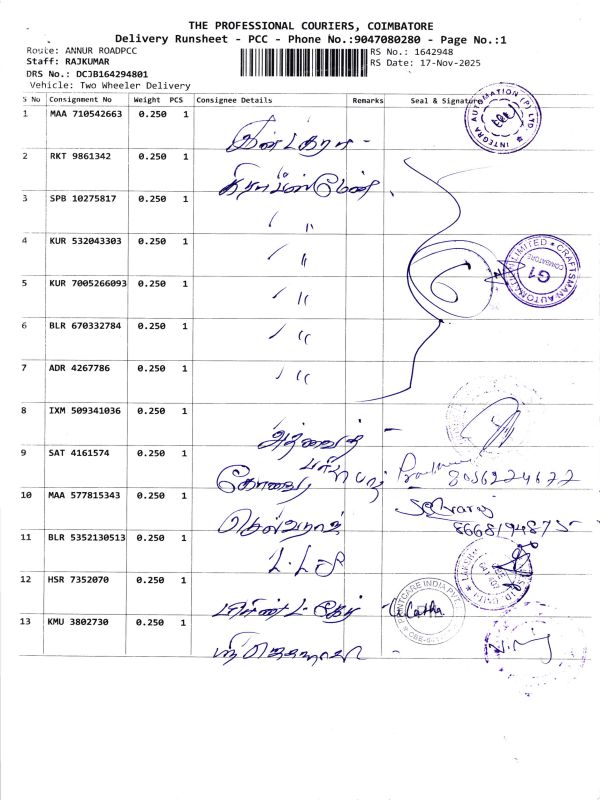 THE PROFESSIONAL COURIERS, COIMBATORE
Delivery Runsheet - PCC - Phone No.:9047080280 - Page No.:1
Route: ANNUR ROADPCC RS No.: 1642948
Staff: RAJKUMAR RS Date: 17-Nov-2025
DRS No.: DCJB164294801
Vehicle: Two Wheeler Delivery
S No Consignment No Weight PCS Consignee Details Remarks Seal & Signature
1 MAA 710542663 0.250 1
INTEGRA AUTOMATION (P) LTD.
2 RKT 9861342 0.250 1
3 SPB 10275817 0.250 1 " "
4 KUR 532043303 0.250 1 " "
CRAFTSMAN AUTOMATION LIMITED
COIMBATORE
G1
5 KUR 7005266093 0.250 1 " "
6 BLR 670332784 0.250 1 " "
7 ADR 4267786 0.250 1 " "
8 IXM 509341036 0.250 1
9 SAT 4161574 0.250 1 கோவை 8056224677
10 MAA 577815343 0.250 1 செல்வராஜ் Selvaraj
8668194875
11 BLR 5352130513 0.250 1
12 HSR 7352070 0.250 1 Latha
PRINTCARE INDIA PVT
13 KMU 3802730 0.250 1